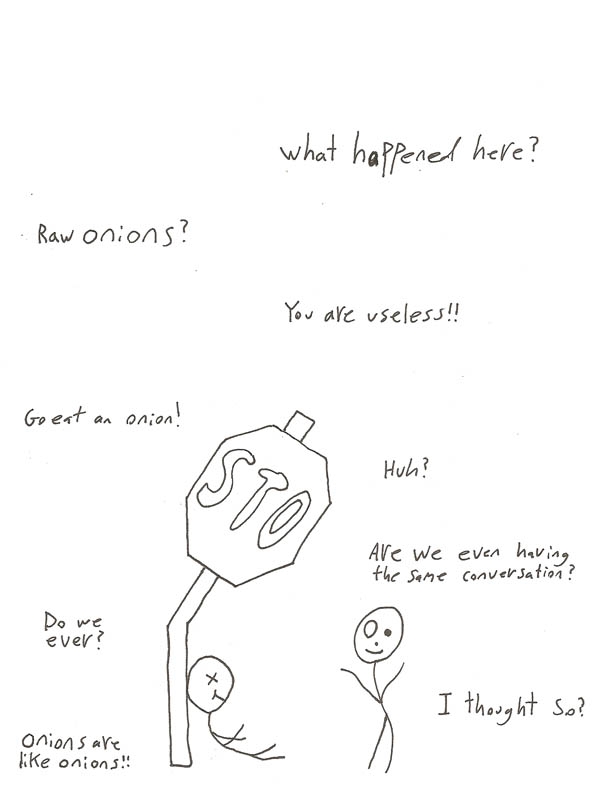 what happened here?
Raw onions?
You are useless!!
Go eat an onion!
Huh?
STO
Are we even having
the same conversation?
Do we
ever?
I thought so?
Onions are
like onions!!